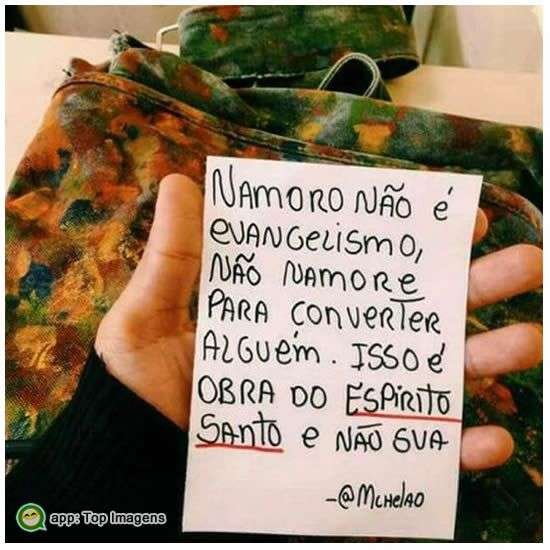 NAMORO NÃO é
evANGelISMO,
NÃO NAMORE
PARA CONVERTER
ALGUÉM. ISSO É
OBRA DO ESPÍRITO
SANTO e NÃO SUA
-@MCHelAO
app: Top Imagens